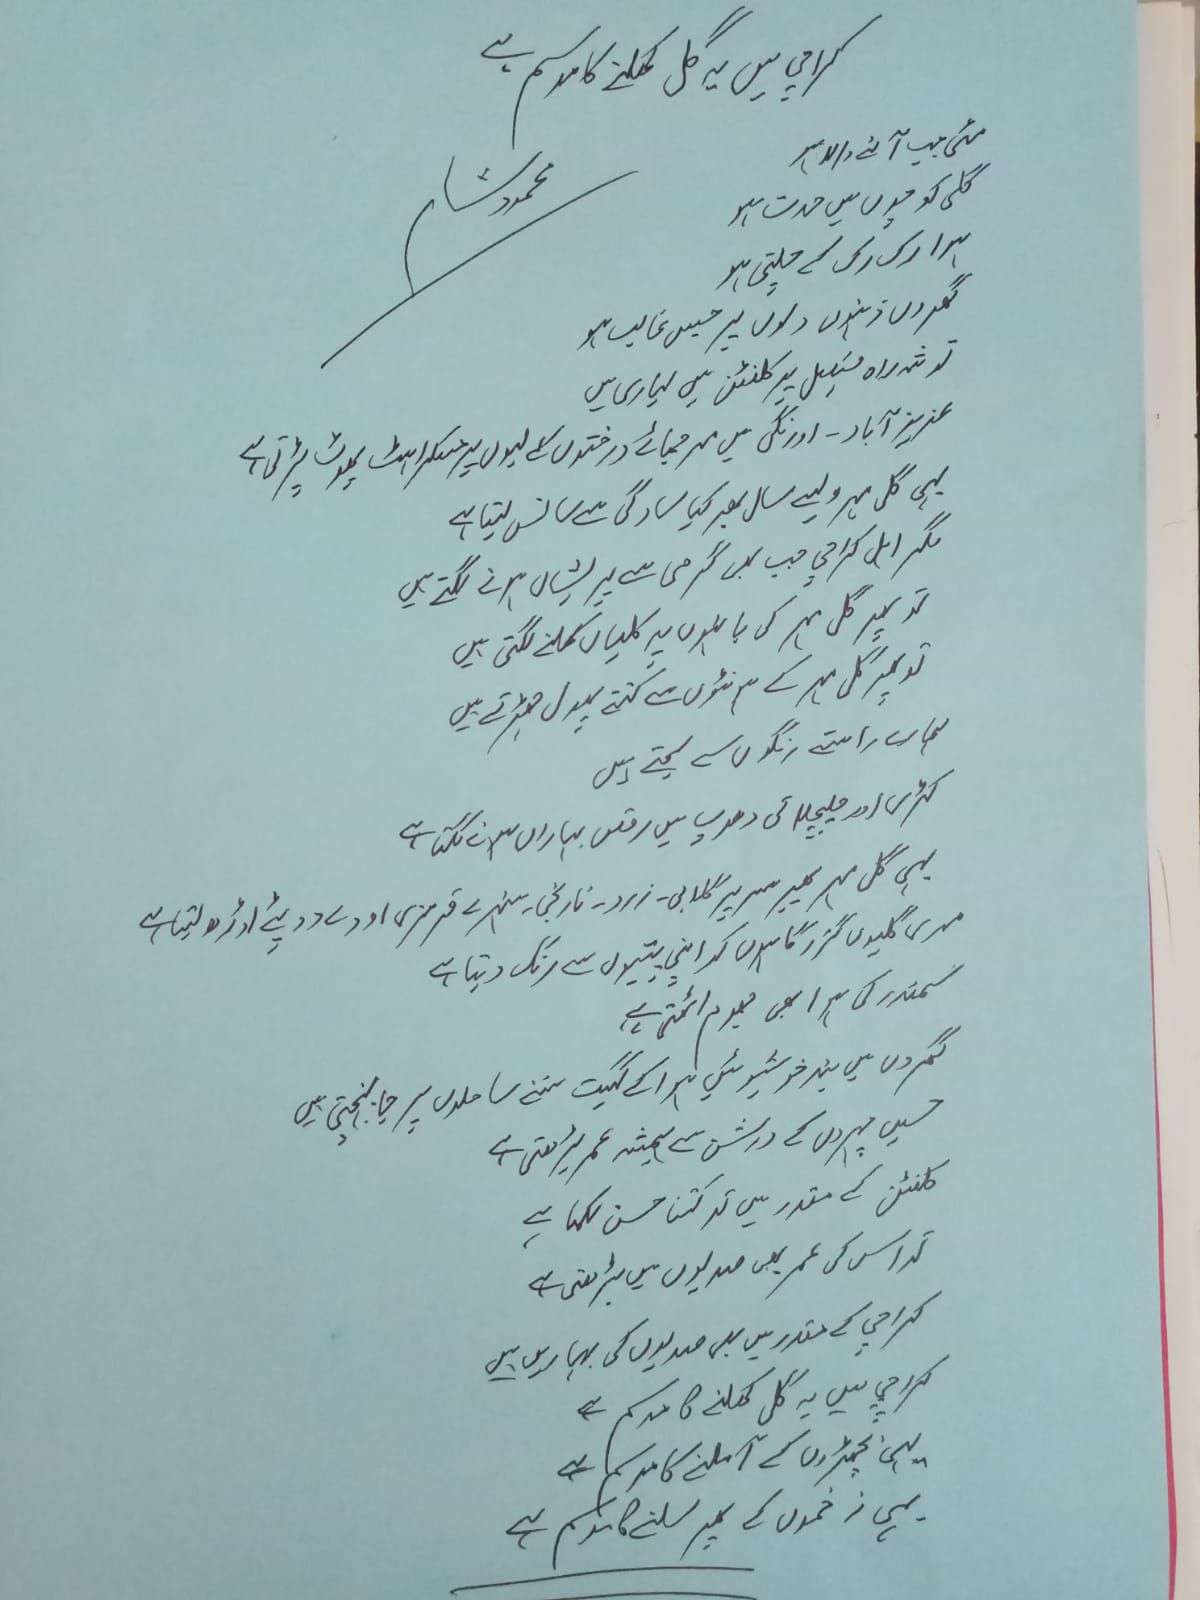 کراچی میں یہ گل کھلنے کا موسم ہے
محمود شام
مئی جب آنے والا ہو
گلی کوچوں میں حدت ہو
ہوا رک رک کے چلتی ہو
گھروں ذہنوں دلوں پر حبس غالب ہو
تو شہراہ فیصل پر کلفٹن میں لیاری میں
عزیز آباد - اورنگی میں مرجھائے درختوں کے لبوں پر مسکراہٹ پھوٹ پڑتی ہے
یہی گل مہر ویسے سال بھر کیا سادگی سے سانس لیتا ہے
مگر اہل کراچی جب بھی گرمی سے پریشاں ہونے لگتے ہیں
تو پھر گل مہر کی بانہوں پہ کلیاں کھلنے لگتی ہیں
تو پھر گل مہر کے ہونٹوں سے کتنے پھول جھڑتے ہیں
ہمارے راستے رنگوں سے سجتے ہیں
کڑی اور چلچلاتی دھوپ میں رقص بہاراں ہونے لگتا ہے
یہی گل مہر پھر سر پر گلابی - زرد - نارنجی - سنہرے قرمزی اودے دوپٹے اوڑھ لیتا ہے
مری گلیوں گزرگاہوں کو اپنی پتیوں سے رنگ دیتا ہے
سمندر کی ہوا بھی جھوم اٹھتی ہے
گھروں میں بند خوشبوئیں ہوا کے گیت سننے ساحلوں پر جا پہنچتی ہیں
حسیں چہروں کے درشن سے ہمیشہ عمر بڑھتی ہے
کلفٹن کے مقدر میں تو کتنا حسن لکھا ہے
تو اس کی عمر بھی صدیوں میں بڑھتی ہے
کراچی کے مقدر میں بھی صدیوں کی بہاریں ہیں
کراچی میں یہ گل کھلنے کا موسم ہے
یہی بچھڑوں کے آ ملنے کا موسم ہے
یہی زخموں کے پھر سلنے کا موسم ہے